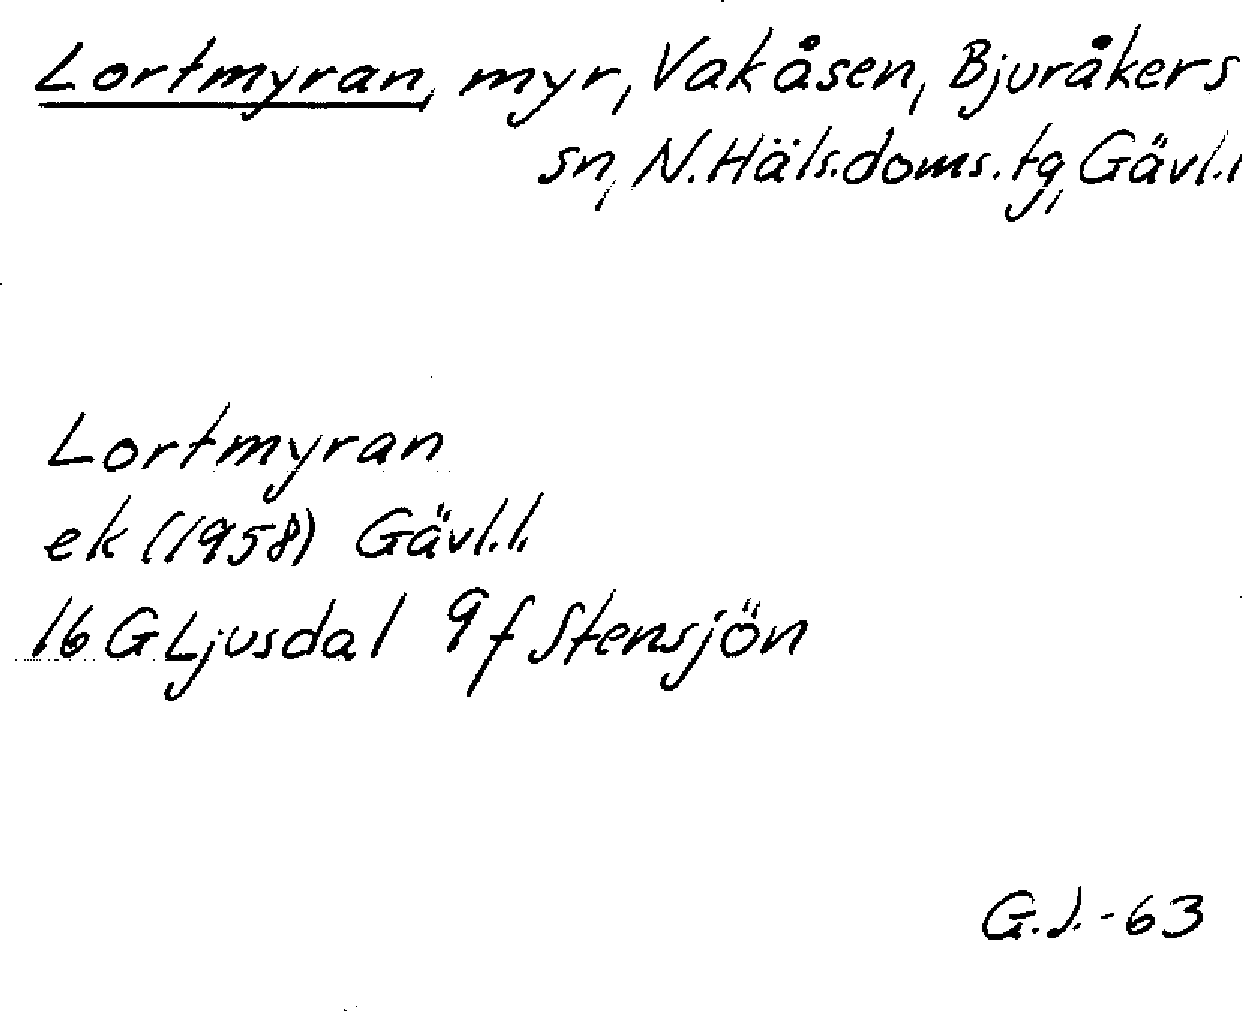 Lortmyran, myr, Vakåsen, Bjuråkers
sn, N.Häls.doms.tg, Gävl.l
Lortmyran
ek (1958) Gävl.l.
16 G Ljusdal 9f Stensjön
G.J.-63